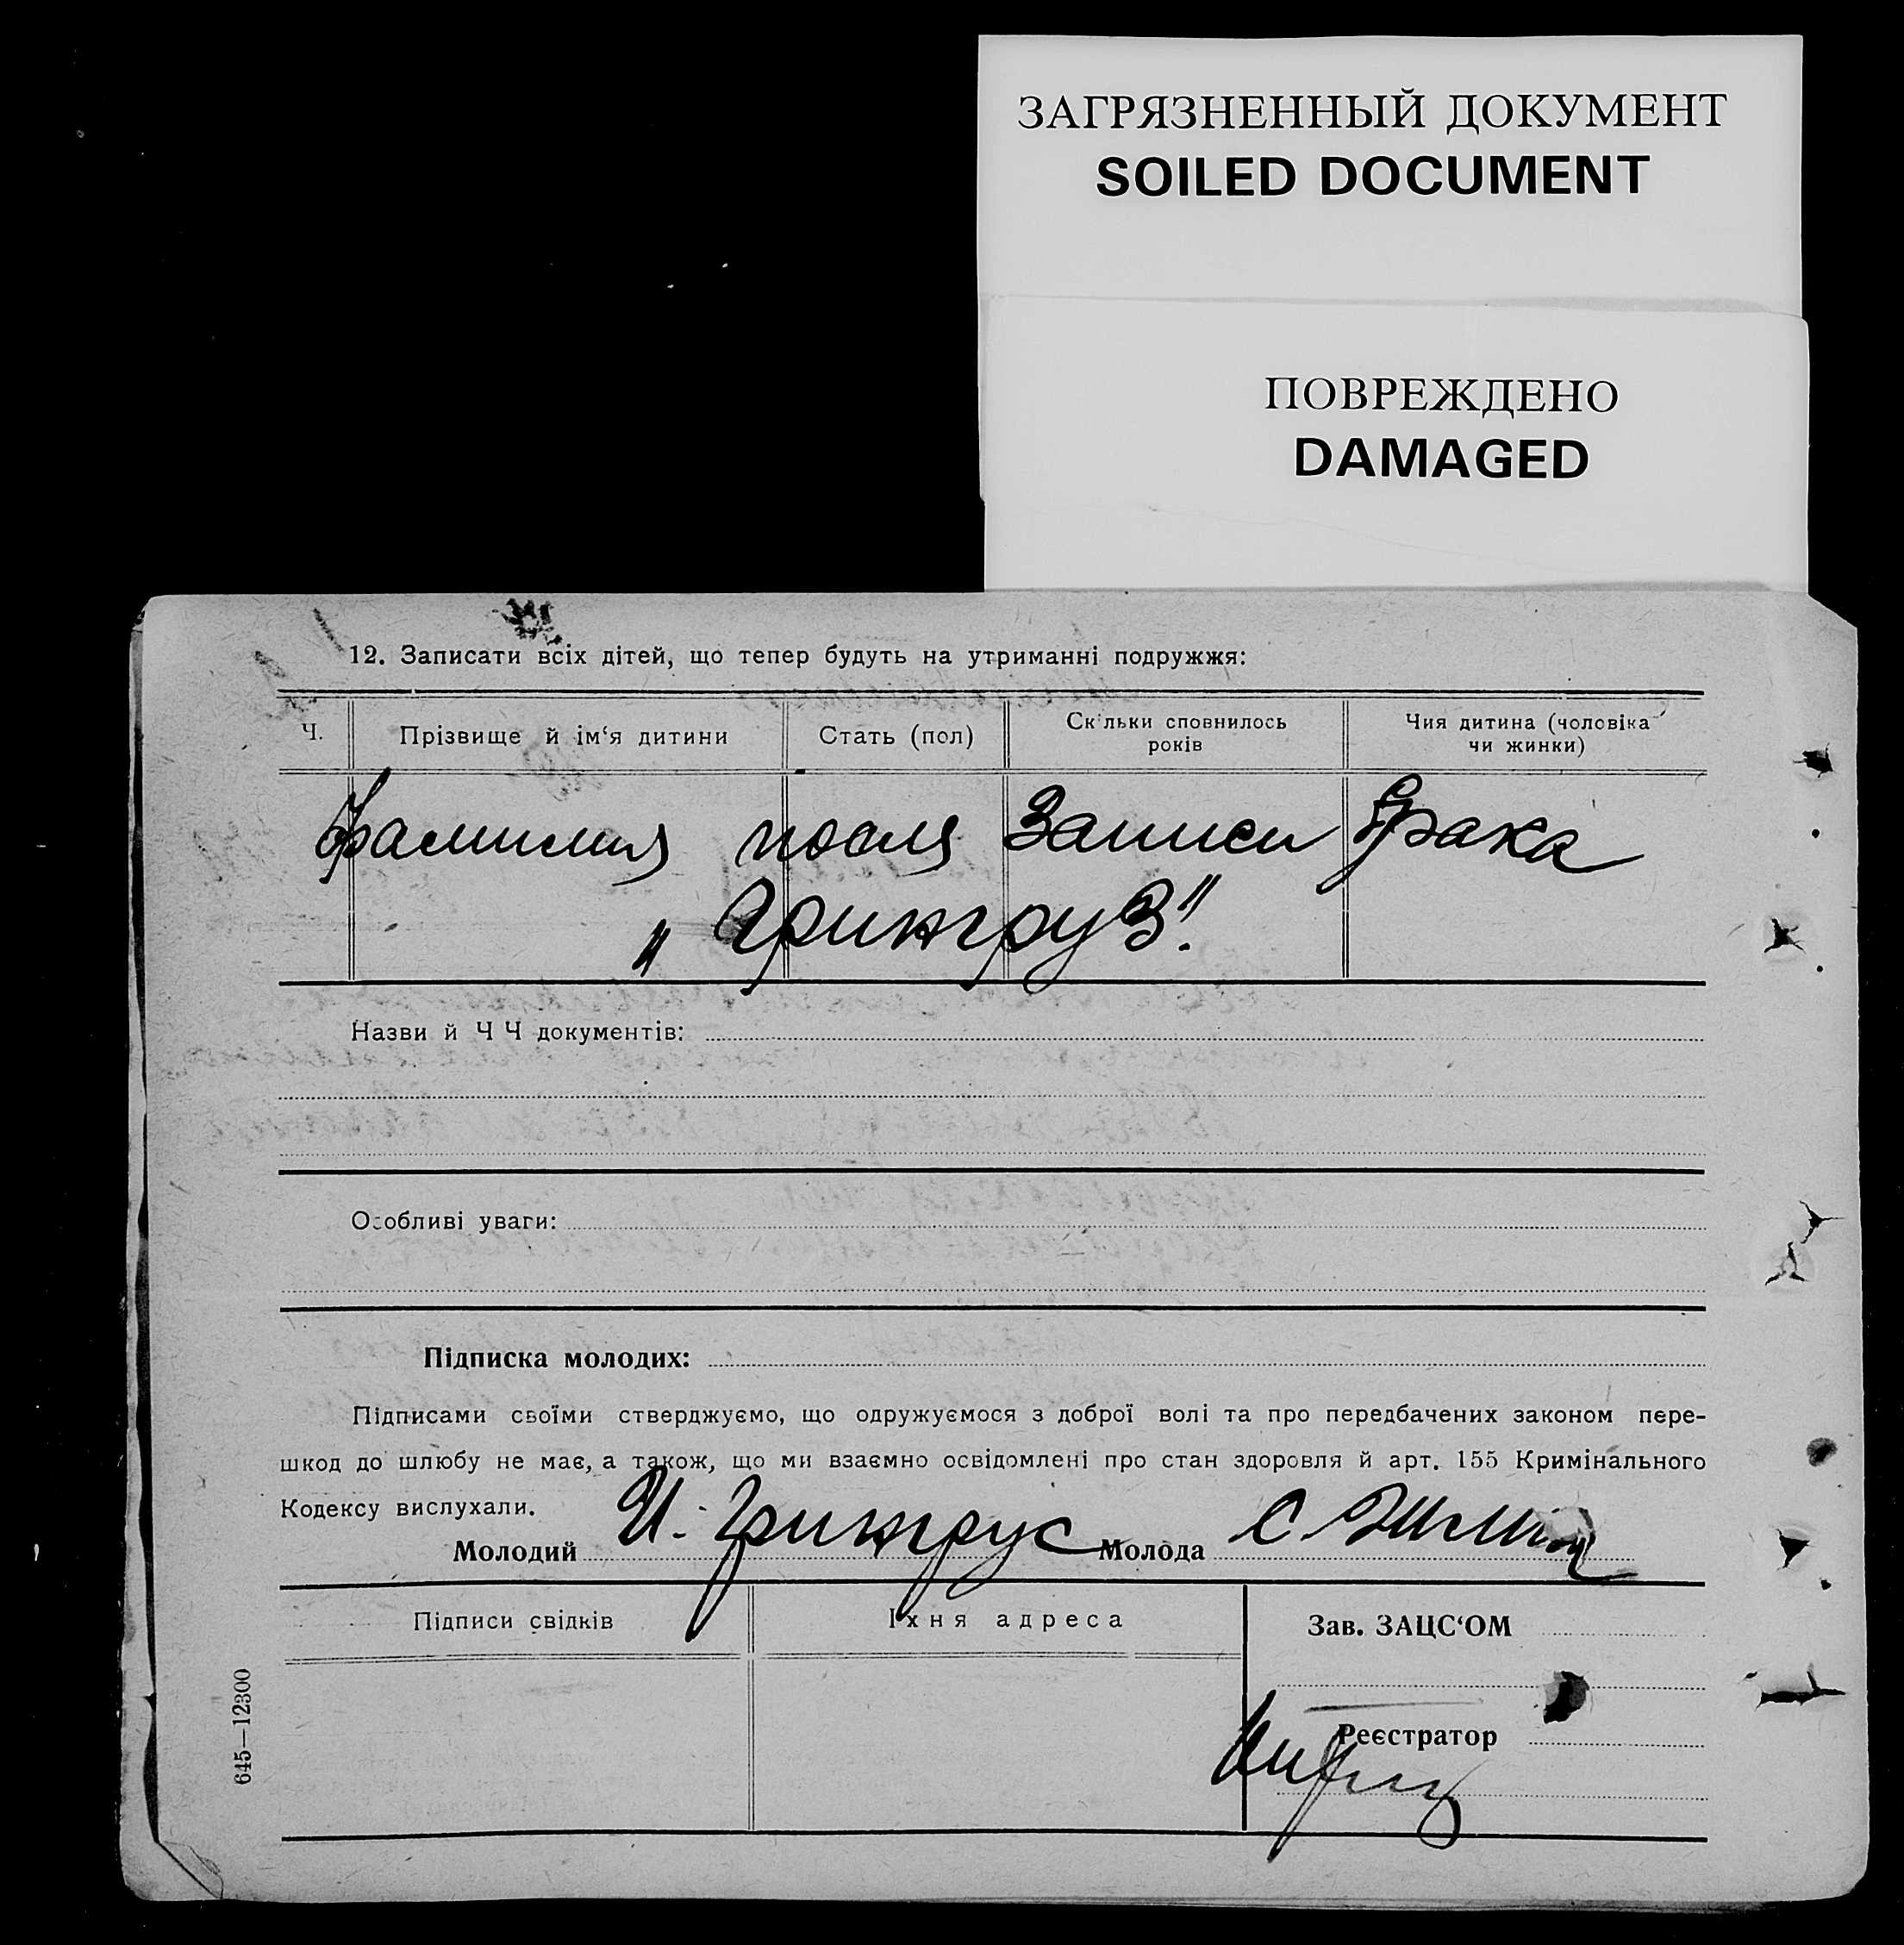 ЗАГРЯЗНЕННЫЙ ДОКУМЕНТ
SOILED DOCUMENT
ПОВРЕЖДЕНО
DAMAGED
12. Записати всіх дітей, що тепер будуть на утриманні подружжя:
Ч. Прізвище й ім‘я дитини Стать (пол) Скільки сповнилось років Чия дитина (чоловіка чи жинки)
фамилия после Записи брака
„Грингруз“.
Назви й Ч Ч документів:
Особливі уваги:
Підписка молодих:
Підписами своїми стверджуємо, що одружуємося з доброї волі та про передбачених законом пере-
шкод до шлюбу не має, а також, що ми взаємно освідомлені про стан здоровля й арт. 155 Кримінального
Кодексу вислухали.
Молодий И. Грингрус Молода С.
Підписи свідків Їхня адреса Зав. ЗАЦС‘ОМ
Реєстратор
645—12300